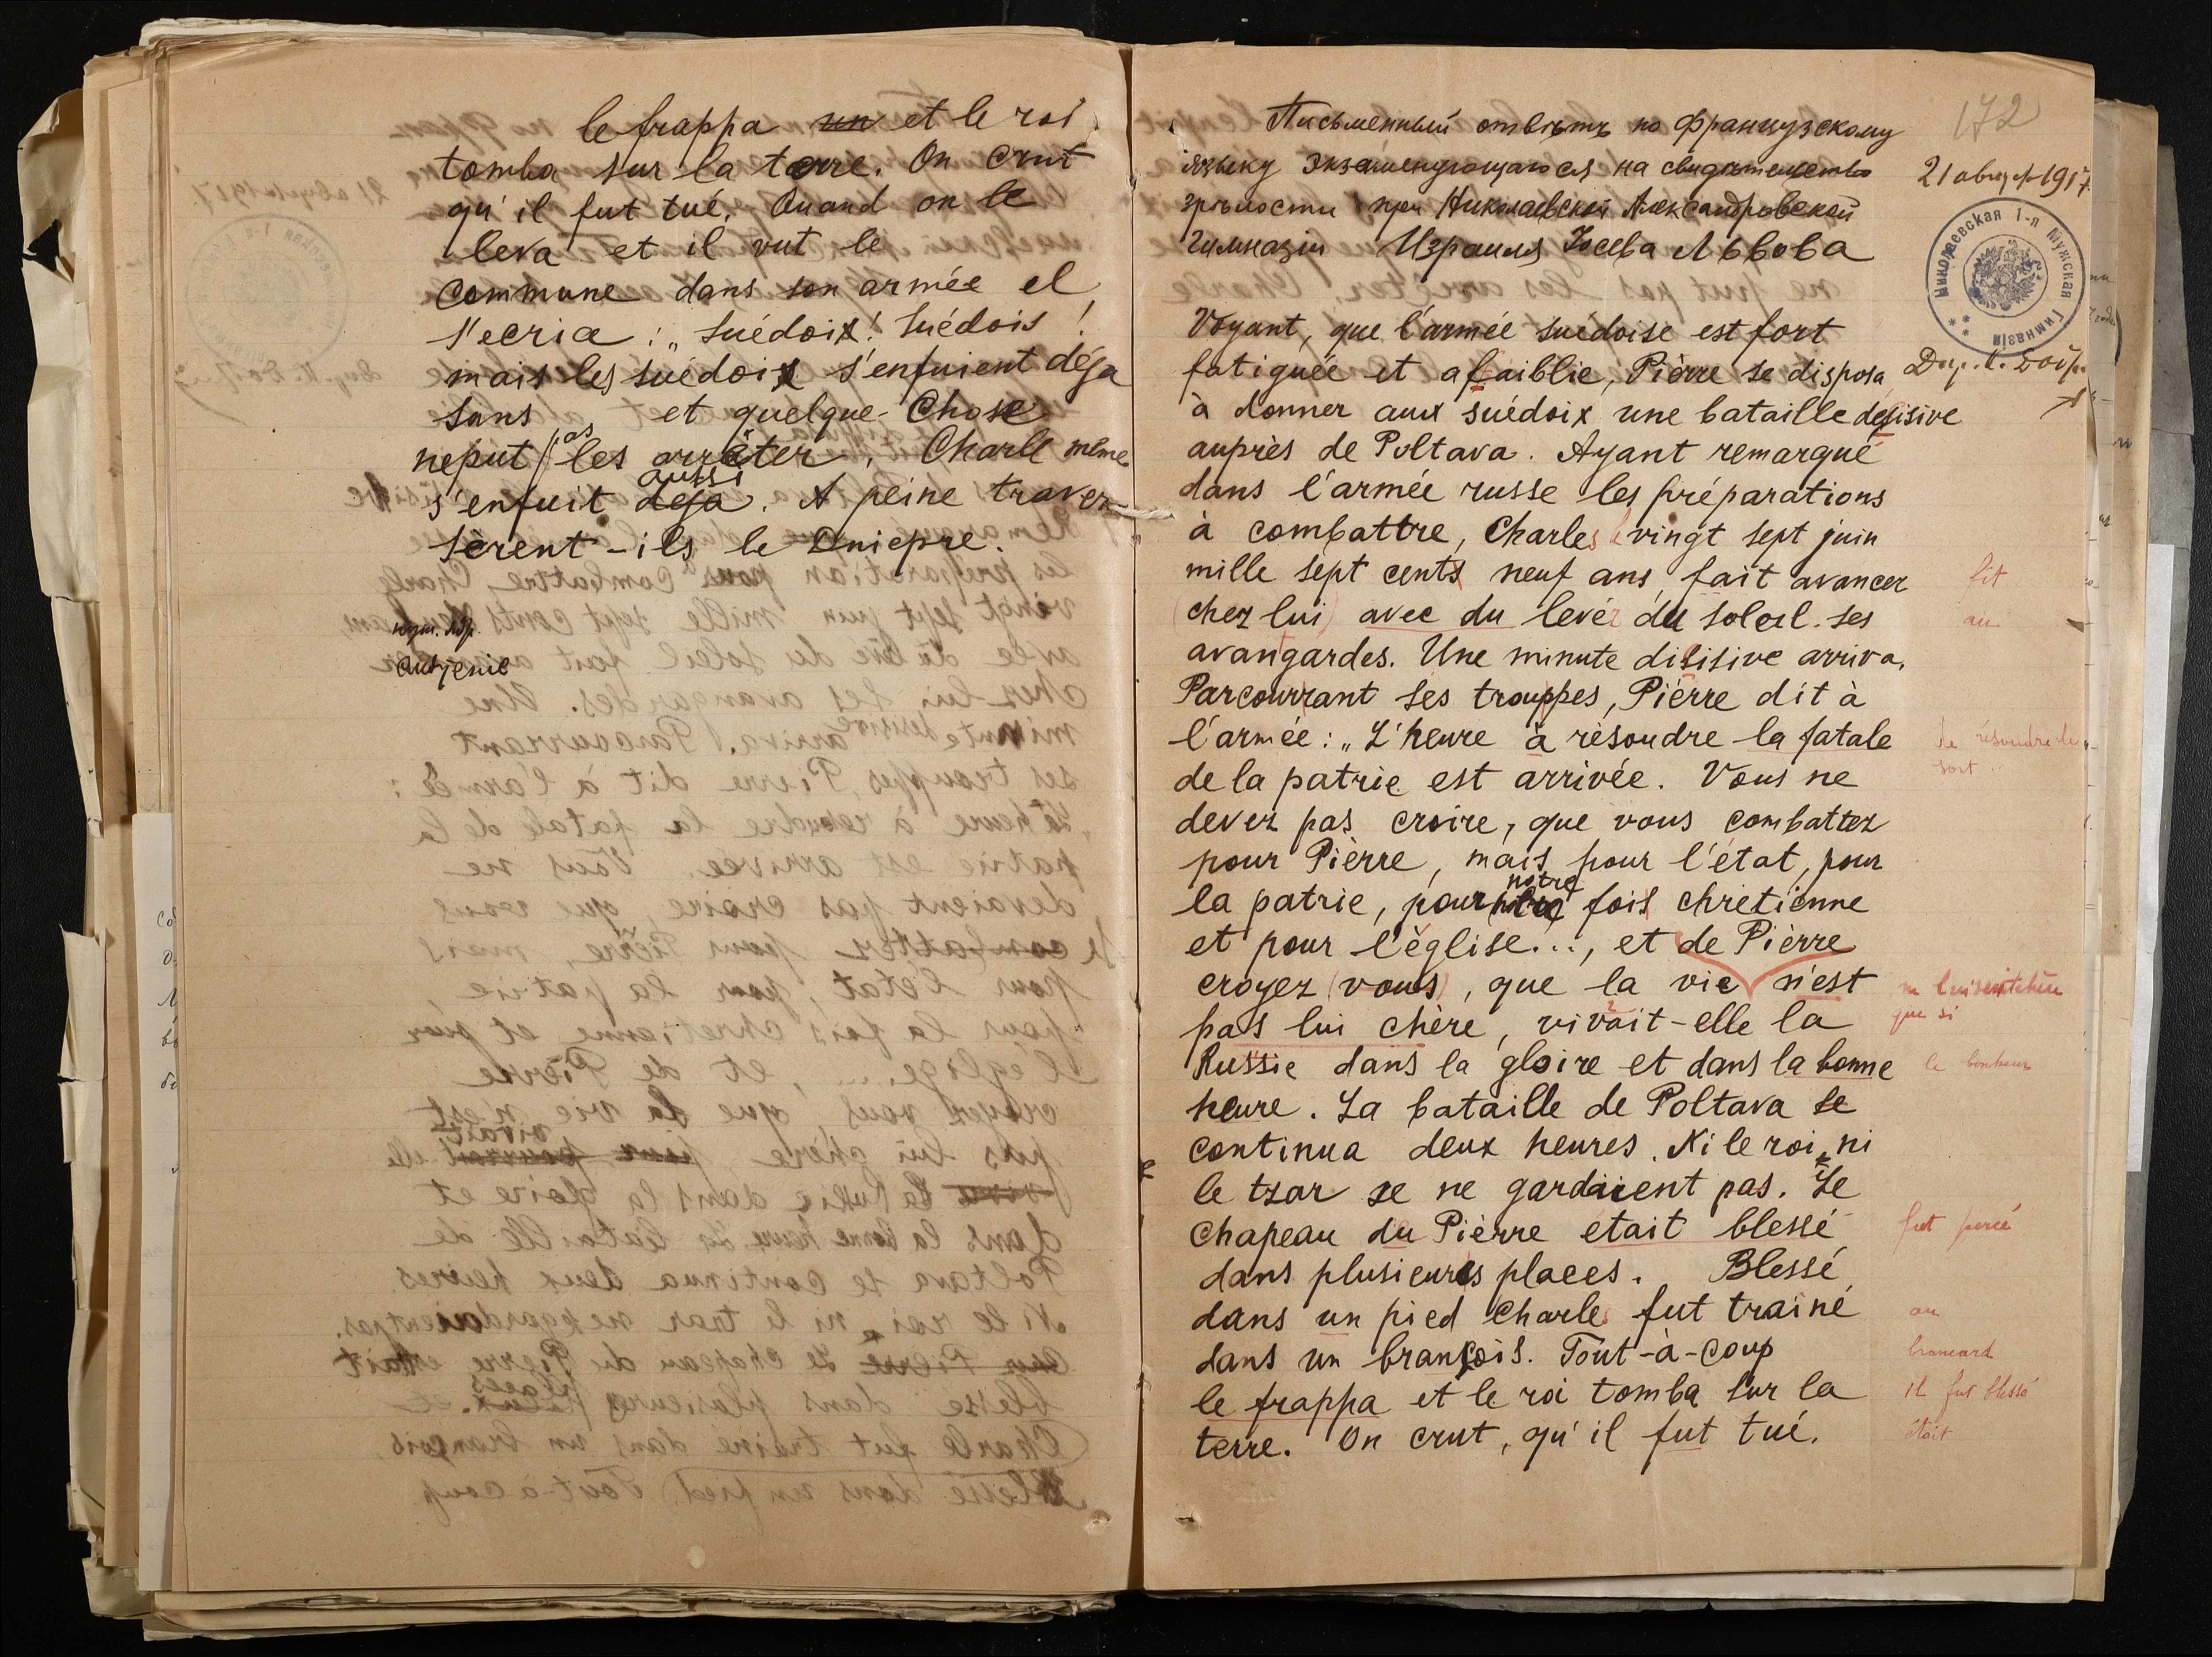 le frappa un et le roi
tomba sur la terre. On crut
qu'il fut tué. Quand on le
leva et il vut le
commune dans son armée el
s'ecria : „ Suédoix! Suédois !
mais les suédoix s'enfuient déja
sans et quelque-chose
ne put pas les arrêter. Charle même
s'enfuit deja aussi. A peine traver-
sèrent-ils le Dniepre.
172
Письменный отвѣтъ по французскому
языку экзаменующагося на свидѣтельство
зрѣлости при Николаевской Александровской
Гимназіи Израиля Іосева Львова
21 август 1917
Николаевская 1-я Мужская Гимназія
Voyant, que l'armée suédoise est fort
fatiguée et afaiblie, Pièrre se disposa
à donner aux suédoix une bataille desisive
auprès de Poltava. Ayant remarqué
dans l'armée russe les préparations
à combattre, Charles le vingt sept juin
mille sept cents neuf ans fait avancer
fit
(chez lui) avec du lever du soleil ses
au
avangardes. Une minute disisive arriva.
Parcourrant ses trouppes, Pièrre dit à
l'armée: „ L'heure à rèsoudre la fatale
de résoudre le
sort
de la patrie est arrivée. Vous ne
devez pas croire, que vous combattez
pour Pièrre, mais pour l'état, pour
la patrie, pour notre fois chretienne
et pour l'èglise..., et de Pièrre
croyez (vous), que la vie n'est
pas lui chère, vivait-elle la
que si
Russie dans la gloire et dans la bonne
le bonheur
heure. La bataille de Poltava se
continua deux heures. Ni le roi, ni
le tzar se ne gardaient pas. Le
chapeau du Pièrre etait blessé
fut percé
dans plusieurs places. Blessé
dans un pied Charles fut trainé
au
dans un brançois. Tout-à-coup
brancard
le frappa et le roi tomba sur la
il fut blessé
terre. On crut, qu'il fut tué.
était